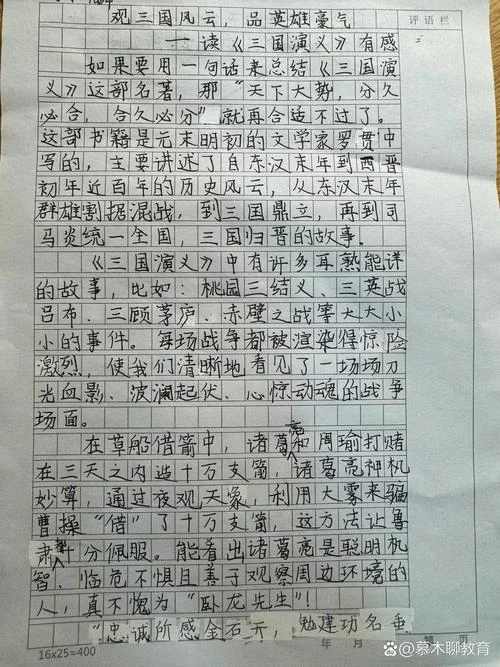 观三国风云，品英雄豪气
——读《三国演义》有感
评语栏
如果要用一句话来总结《三国演
义》这部名著，那“天下大势，分久
必合，合久必分”就再合适不过了。
这部书籍是元末明初的文学家罗贯中
写的，主要讲述了自东汉末年到西晋
初年近百年的历史风云，从东汉末年
群雄割据混战，到三国鼎立，再到司
马炎统一全国，三国归晋的故事。
《三国演义》中有许多耳熟能详
的故事，比如：桃园三结义、三英战
吕布、三顾茅庐、赤壁之战等大大小
小的事件。每场战争都被渲染得惊险
激烈，使我们清晰地看见了一场场刀
光血影、波澜起伏、心惊动魂的战争
场面。
在草船借箭中，诸葛亮和周瑜打赌
在三天之内造十万支箭，诸葛亮神机
妙算，通过夜观天像，利用大雾来骗
曹操“借”了十万支箭，这方法让鲁
肃十分佩服。能看出诸葛亮是聪明机
智、临危不惧且善于观察周边环境的
人，真不愧为“卧龙先生”！
“忠诚所感金石开，勉建功名垂
16x25=400
年 月
第 页
@慕木聊教育